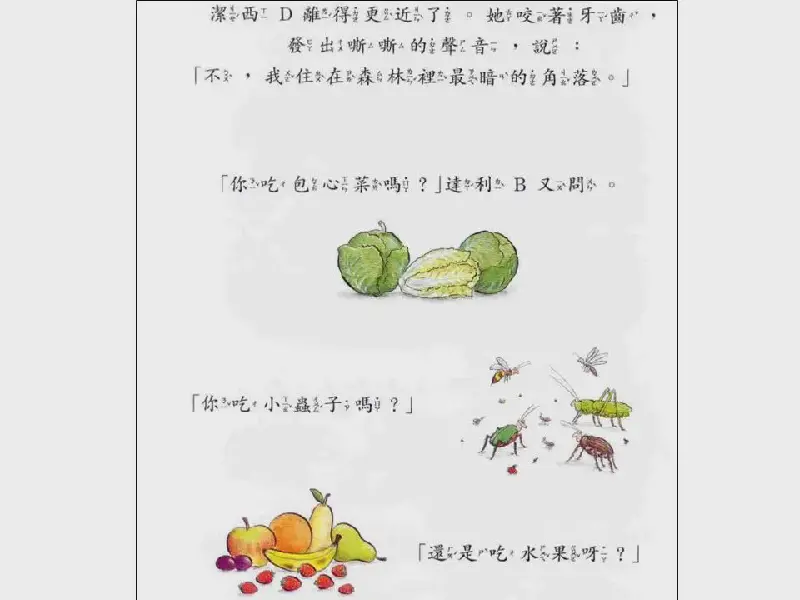 潔西 D 離得更近了。她咬著牙齒，
發出嘶嘶的聲音，說：
「不，我住在森林裡最暗的角落。」
「你吃包心菜嗎？」達利 B 又問。
「你吃小蟲子嗎？」
「還是吃水果呀？」